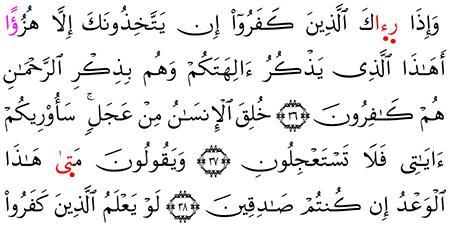 وَإِذَا رِءَاكَ ٱلَّذِينَ كَفَرُوٓا۟ إِن يَتَّخِذُونَكَ إِلَّا هُزُؤًا
أَهَٰذَا ٱلَّذِى يَذْكُرُ ءَالِهَتَكُمْ وَهُم بِذِكْرِ ٱلرَّحْمَٰنِ
هُمْ كَٰفِرُونَ ٣٦ خُلِقَ ٱلْإِنسَٰنُ مِنْ عَجَلٍ ۚ سَأُو۟رِيكُمْ
ءَايَٰتِى فَلَا تَسْتَعْجِلُونِ ٣٧ وَيَقُولُونَ مَتَىٰ هَٰذَا
ٱلْوَعْدُ إِن كُنتُمْ صَٰدِقِينَ ٣٨ لَوْ يَعْلَمُ ٱلَّذِينَ كَفَرُوا۟